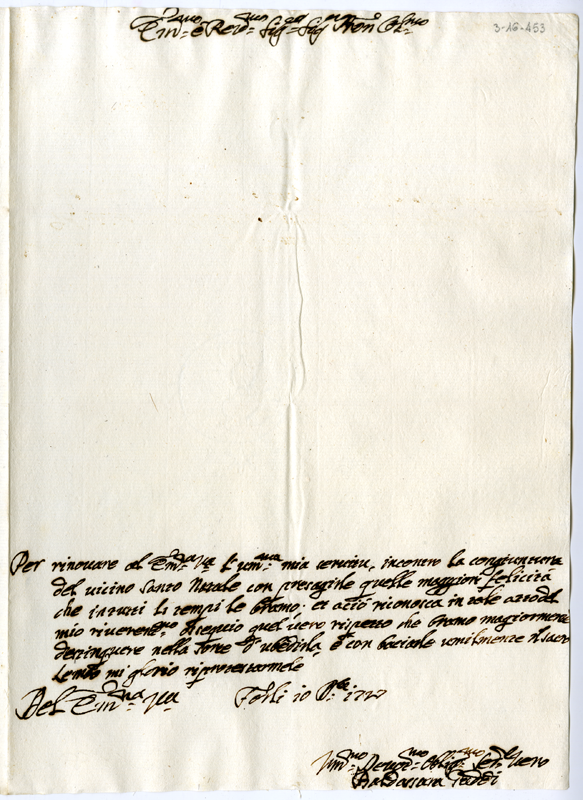 Em.mo e Rev.mo Sig.r Sig.r Pron Col.mo
3-16-453
Per rinovare al Em.za Va l'um.ma mia servitu, incontro la congiuntura
del vicino Santo Natale con presagirle quelle maggiori felicità
che in tutti li tempi le bramo; et acciò riconosca in tale atto del
mio riverent.mo ossequio quel vero rispetto che bramo magiormente
nella d'ubedirla, e con baciarle umilmente il sacro
Lembo mi glorio riprotestarmele
Del Em.za Va Forlì 10 Xbre
Um.mo Devot.mo Oblig.mo Ser.re Vero
Baldassara